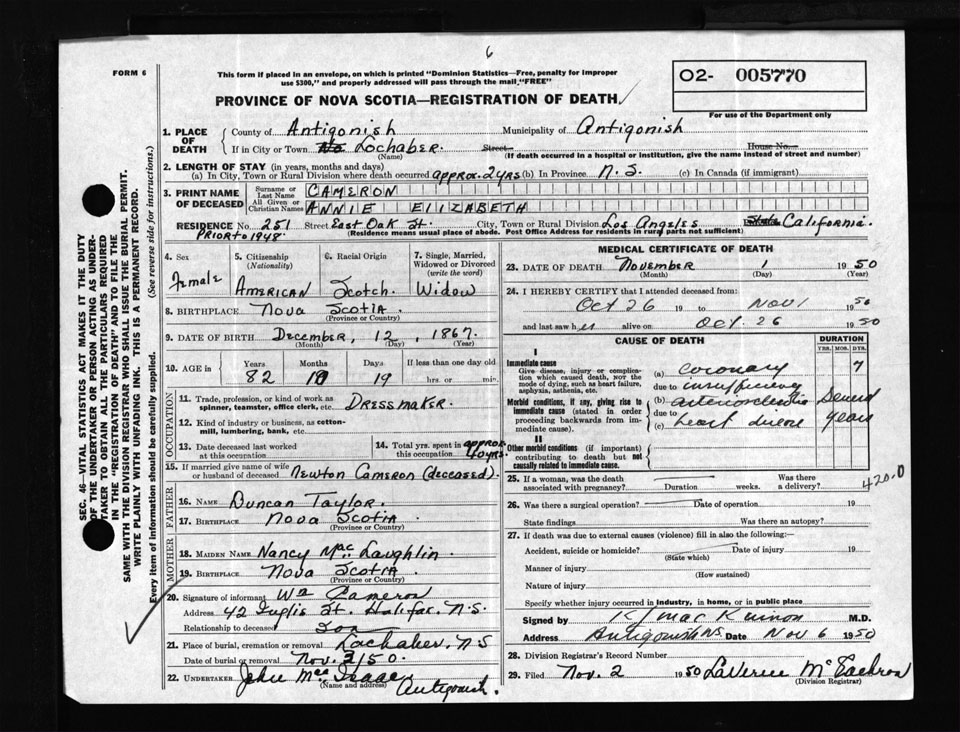 6
FORM 6
This form if placed in an envelope, on which is printed "Dominion Statistics—Free, penalty for improper
use $300," and properly addressed will pass through the mail "FREE"
O2- 005770
For use of the Department only
PROVINCE OF NOVA SCOTIA—REGISTRATION OF DEATH
1. PLACE OF DEATH
County of Antigonish Municipality of Antigonish
If in City or Town Lochaber Street House No.
(Name) (If death occurred in a hospital or institution, give the name instead of street and number)
2. LENGTH OF STAY (in years, months and days)
(a) In City, Town or Rural Division where death occurred approx. 2 yrs (b) In Province N. S. (c) In Canada (if immigrant)
3. PRINT NAME OF DECEASED
Surname or Last Name CAMERON
All Given or Christian Names ANNIE ELIZABETH
RESIDENCE No. 251 Street East Oak St. City, Town or Rural Division Los Angeles State California.
PRIOR TO 1948. (Residence means usual place of abode. Post Office Address for residents in rural parts not sufficient)
4. Sex Female
5. Citizenship (Nationality) AMERICAN
6. Racial Origin Scotch.
7. Single, Married, Widowed or Divorced (write the word) Widow
8. BIRTHPLACE Nova Scotia.
(Province or Country)
9. DATE OF BIRTH December, 12, 1867.
(Month) (Day) (Year)
10. AGE in Years 82 Months 10 Days 19 If less than one day old hrs. or min.
OCCUPATION
11. Trade, profession, or kind of work as spinner, teamster, office clerk, etc. Dressmaker.
12. Kind of industry or business, as cotton-mill, lumbering, bank, etc.
13. Date deceased last worked at this occupation
14. Total yrs. spent in this occupation approx. 40 yrs.
15. If married give name of wife or husband of deceased Newton Cameron (deceased).
FATHER
16. NAME Duncan Taylor.
17. BIRTHPLACE Nova Scotia
(Province or Country)
MOTHER
18. MAIDEN NAME Nancy MacLaughlin.
19. BIRTHPLACE Nova Scotia.
(Province or Country)
20. Signature of informant Wm Cameron
Address 42 Inglis St. Halifax, N.S.
Relationship to deceased Son
21. Place of burial, cremation or removal Lochaber, N S
Date of burial or removal Nov. 2/50.
22. UNDERTAKER John McIsaac Antigonish.
(Name and address)
MEDICAL CERTIFICATE OF DEATH
23. DATE OF DEATH November 1 1950
(Month) (Day) (Year)
24. I HEREBY CERTIFY that I attended deceased from:
Oct 26 19 to Nov 1 1950
and last saw her alive on Oct. 26 1950
CAUSE OF DEATH
DURATION
YRS. MOS. DYS.
I
Immediate cause
Give disease, injury or complication which caused death, not the mode of dying, such as heart failure, asphyxia, asthenia, etc.
(a) coronary 7
due to insufficiency
Morbid conditions, if any, giving rise to immediate cause (stated in order proceeding backwards from immediate cause).
(b) arteriosclerotic Several
due to
(c) heart disease years
II
Other morbid conditions (if important) contributing to death but not causally related to immediate cause.
420.0
25. If a woman, was the death associated with pregnancy? Duration weeks. Was there a delivery?
26. Was there a surgical operation? Date of operation 19
State findings Was there an autopsy?
27. If death was due to external causes (violence) fill in also the following:—
Accident, suicide or homicide? Date of injury 19
(State which)
Manner of injury
(How sustained)
Nature of injury
Specify whether injury occurred in industry, in home, or in public place
Signed by MacKinnon M.D.
Address Antigonish NS Date Nov 6 1950
28. Division Registrar's Record Number
29. Filed Nov. 2 1950 LaVerne McEachron
(Division Registrar)
SEC. 46—VITAL STATISTICS ACT MAKES IT THE DUTY
OF THE UNDERTAKER OR PERSON ACTING AS UNDER-
TAKER TO OBTAIN ALL THE PARTICULARS REQUIRED
IN THE "REGISTRATION OF DEATH" AND TO FILE THE
SAME WITH THE DIVISION REGISTRAR WHO SHALL ISSUE THE BURIAL PERMIT.
WRITE PLAINLY WITH UNFADING INK. THIS IS A PERMANENT RECORD.
Every item of information should be carefully supplied. (See reverse side for instructions.)